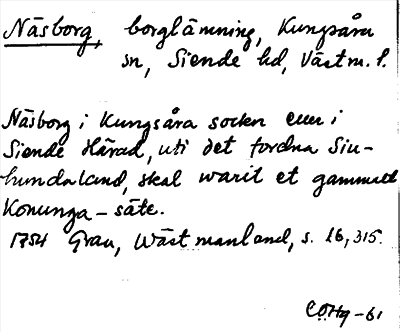 Näsborg, borglämning, Kungsåra
sn, Siende hd, Västm. l.
Näsborg i Kungsåra socken
Siende Härad, uti det fordna Siu-
hundaland, skal warit et gammalt
Konunga-säte.
1754 Grau, Wästmanland, s. 16, 315.
COHg-61